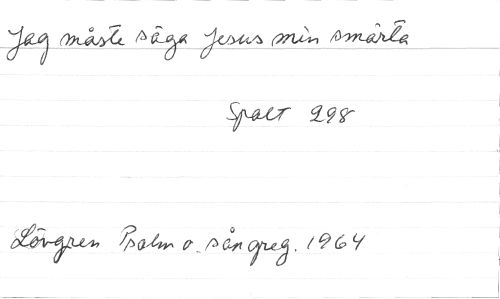 Jag måste säga Jesus min smärta
Spalt 298
Lövgren Psalm o. sångreg. 1964